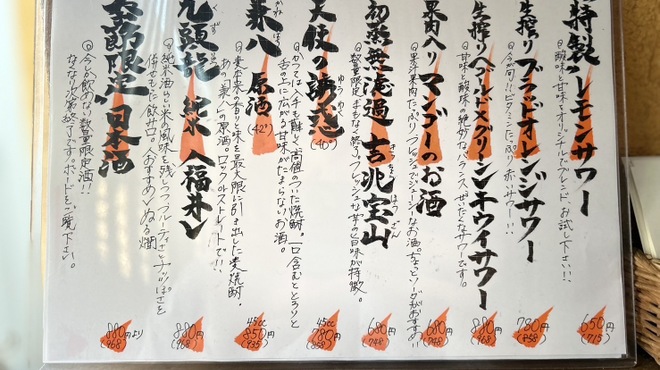 特製レモンサワー
酸味と甘味をオリジナルでブレンド、お試し下さい!!
650円
(715)
生搾りブラッドオレンジサワー
今が旬!!ビタミンたっぷり赤いサワー!!
780円
(858)
生搾りベルガールド×グリーンキウイサワー
甘味と酸味の絶妙なバランス、ぜいたくなサワーです。
880円
(968)
果肉入りマンゴーのお酒
果汁果肉たっぷり、フレッシュでジューシーなお酒。ちょっとソーダがおすすめ!!
680円
(748)
初蒸留無濾過 吉兆宝山
きっちょうほうざん
数量限定
フレッシュな芋の旨味が特徴。
680円
(748)
天使の誘惑
ゆうわく
(40°)
かつてはハチも難しく高値のついた焼酎。一口含むととろりと
舌の上に広がる甘味がたまらないお酒。
45cc
780円
(858)
兼八 原酒
かねはち
(42°)
麦本来の香りと味を最大限に引き出した麦焼酎。
ロックorストレートで!!
45cc
850円
(935)
九頭龍 純米 入福井
くずりゅう
純米酒らしい米の風味を残しつつフルーティさとナッツぽさを
併せもった飲み口。おすすめはぬる燗
880円
(968)
季節限定日本酒
今しか飲めない数量限定酒!!
なくなり次第終了です。ボードをご覧下さい。
880円より
(968)